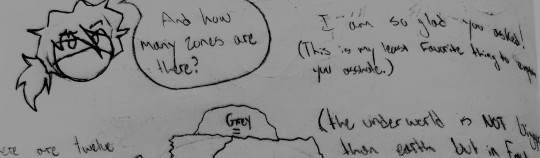 And how
many zones are
there?
I am so glad you asked!
(This is my least Favorite thing to
you asshole.)
Grey
(the underworld is NOT
than earth but in
ere are twelve